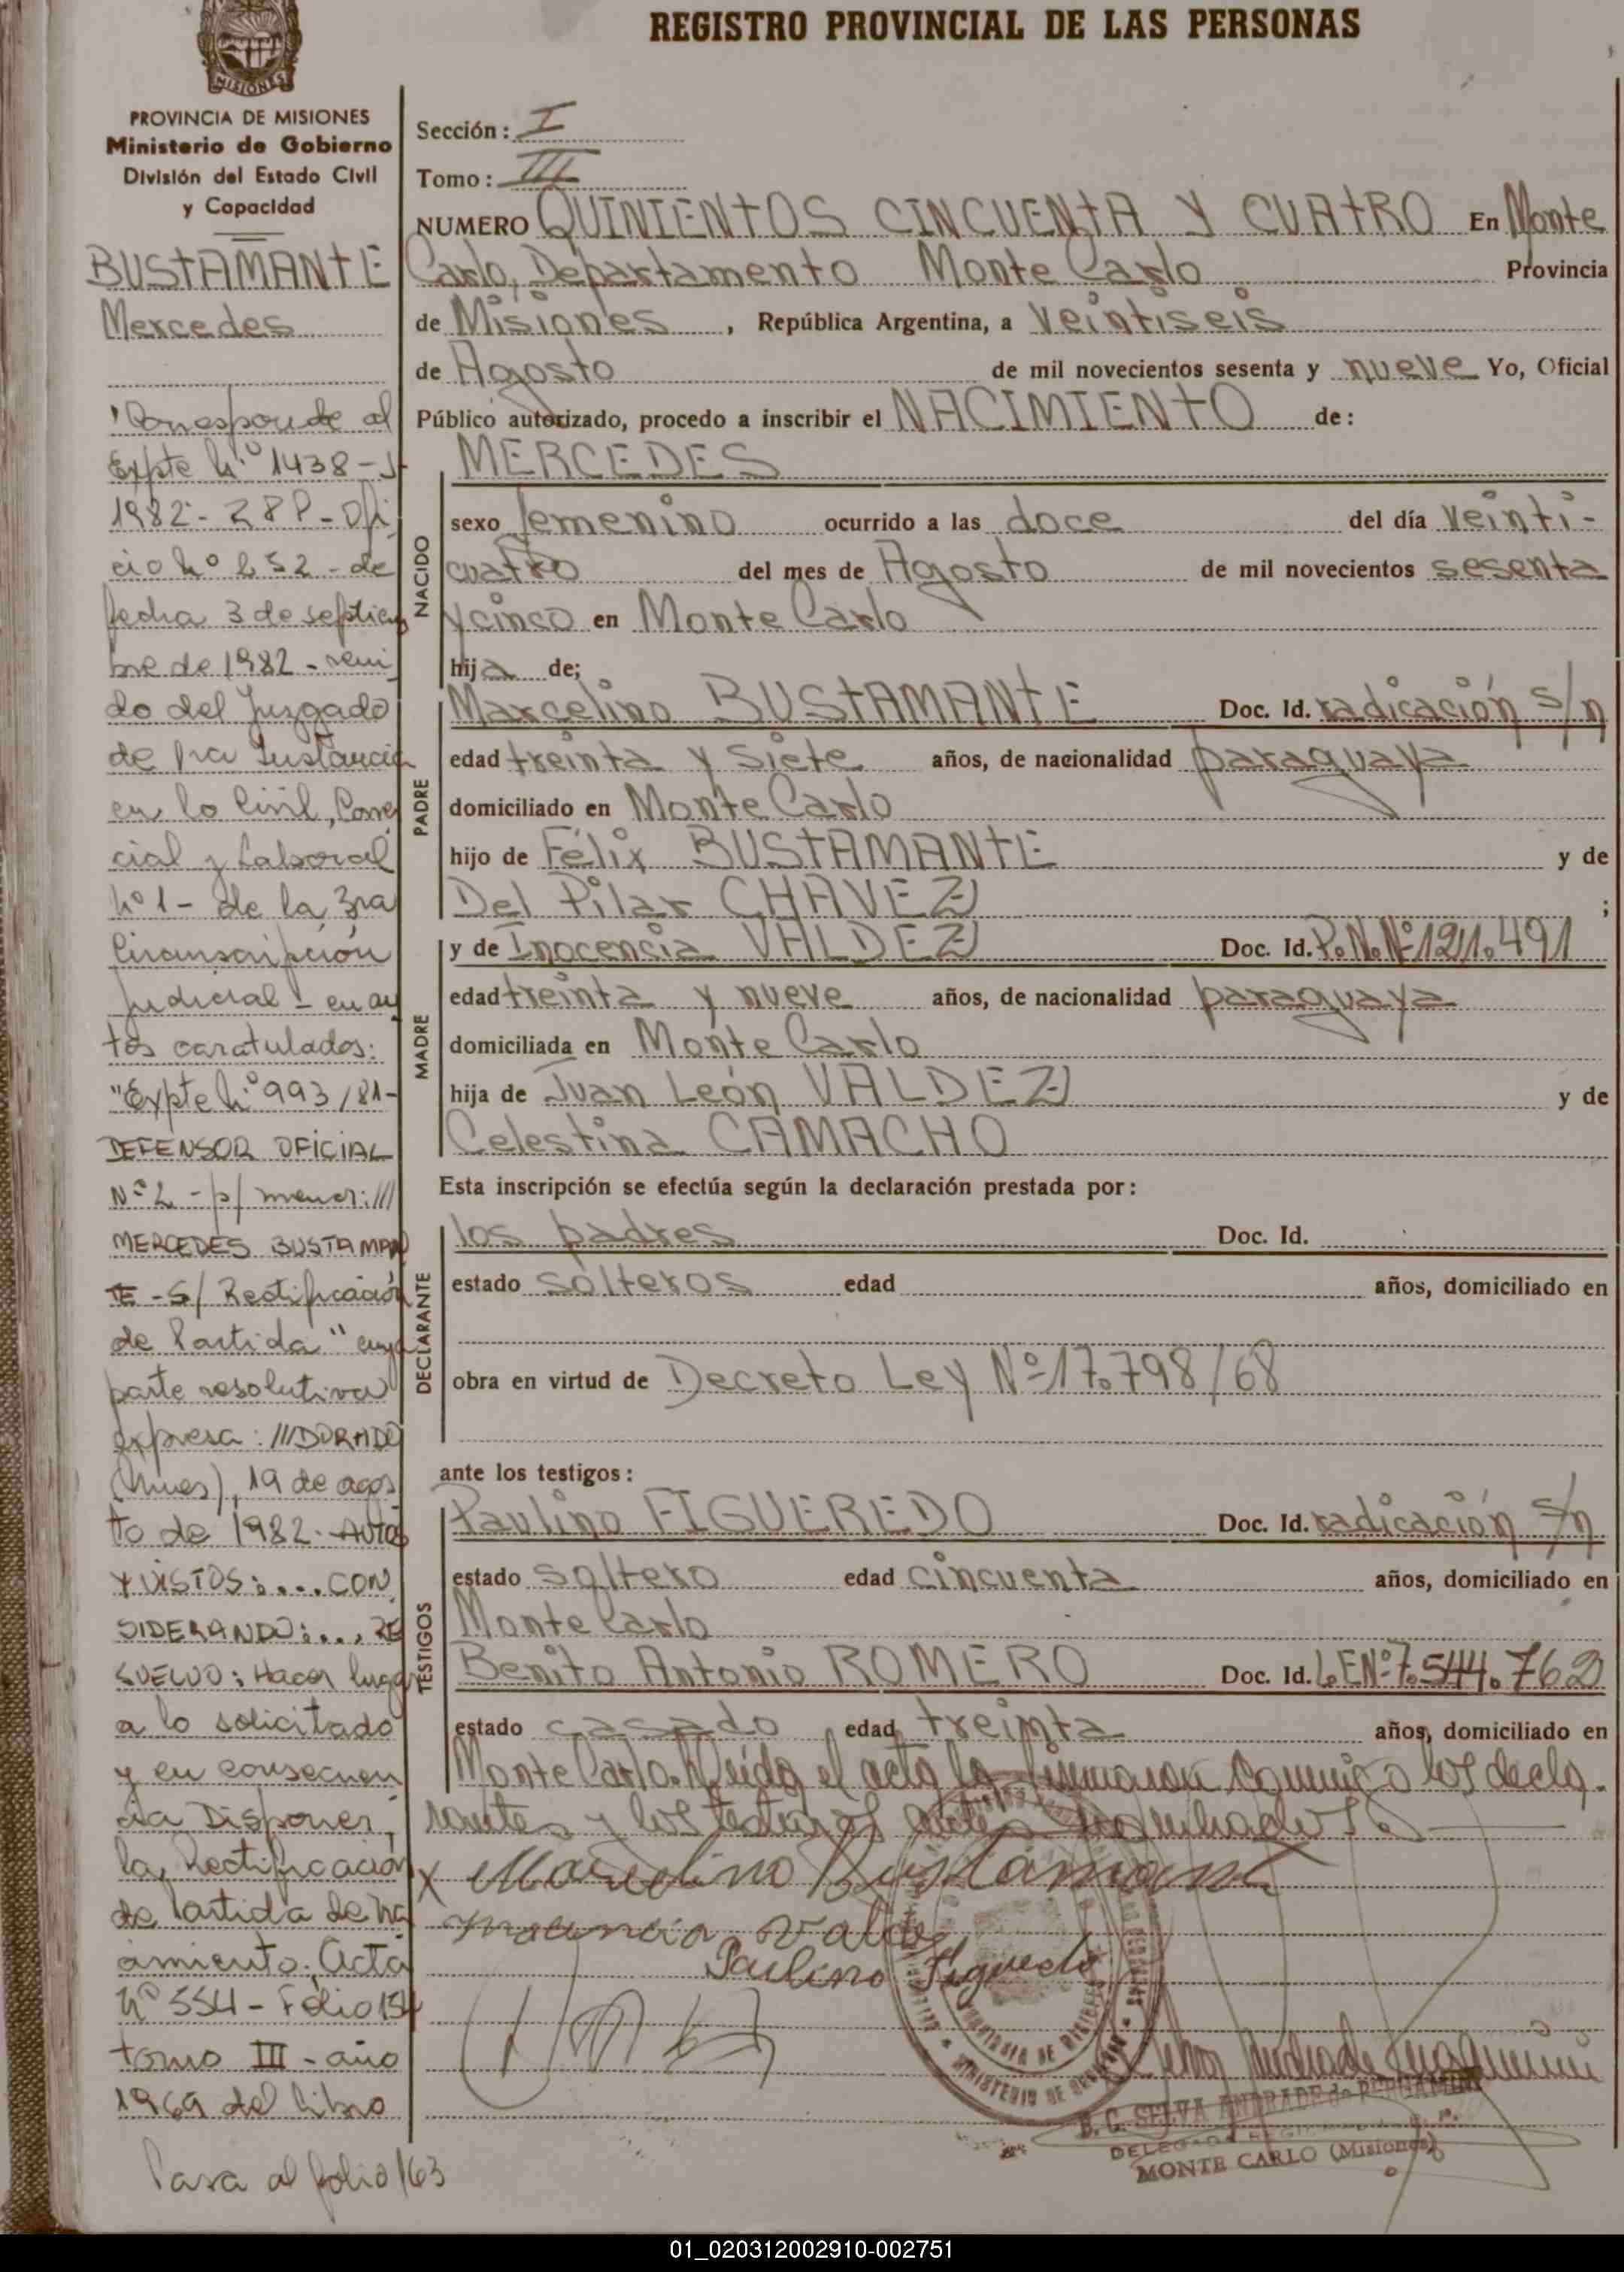 REGISTRO PROVINCIAL DE LAS PERSONAS
MISIONES
PROVINCIA DE MISIONES
Ministerio de Gobierno
División del Estado Civil
y Capacidad
BUSTAMANTE
Mercedes
Corresponde al
Expte Nº 1438-J-
1982- - Ofi
cio Nº 252 - de
fecha 3 de septiem
bre de 1982 - remi
do del Juzgado
de 1ra Instancia
en lo Civil, Comer
cial y Laboral
Nº 1 - de la 3ra
Circunscripción
Judicial - en au
tos caratulados:
"Expte Nº 993/81-
DEFENSOR OFICIAL
Nº 2 - p/ menor: ///
MERCEDES BUSTAMAN
TE - S/ Rectificación
de Partida" cuya
parte resolutiva
expresa: ///DORADO
(Mnes), 19 de agos
to de 1982. AUTOS
Y VISTOS:... CON
SIDERANDO:..., RE
SUELVO: Hacer lugar
a lo solicitado
y en consecuen
cia Disponer,
la Rectificación
de Partida de na
cimiento: Acta
Nº 554 - Folio 154
tomo III - año
1969 del libro
Pasa al folio 163
Sección: I
Tomo: III
NUMERO QUINIENTOS CINCUENTA Y CUATRO En Monte
Carlo, Departamento Monte Carlo Provincia
de Misiones, República Argentina, a veintiseis
de Agosto de mil novecientos sesenta y nueve Yo, Oficial
Público autorizado, procedo a inscribir el NACIMIENTO de:
MERCEDES
NACIDO
sexo femenino ocurrido a las doce del día veinti-
cuatro del mes de Agosto de mil novecientos sesenta
y cinco en Monte Carlo
hija de;
PADRE
Marcelino BUSTAMANTE Doc. Id. radicación s/n
edad treinta y siete años, de nacionalidad paraguaya
domiciliado en Monte Carlo
hijo de Félix BUSTAMANTE y de
Del Pilar CHAVEZ ;
MADRE
y de Inocencia VALDEZ Doc. Id. P.N.Nº121.491
edad treinta y nueve años, de nacionalidad paraguaya
domiciliada en Monte Carlo
hija de Juan León VALDEZ y de
Celestina CAMACHO
Esta inscripción se efectúa según la declaración prestada por:
DECLARANTE
los padres Doc. Id.
estado solteros edad años, domiciliado en
obra en virtud de Decreto Ley Nº17.798/68
ante los testigos:
TESTIGOS
Paulino FIGUEREDO Doc. Id. radicación s/n
estado soltero edad cincuenta años, domiciliado en
Monte Carlo
Benito Antonio ROMERO Doc. Id. L.E.Nº7.544.762
estado casado edad treinta años, domiciliado en
Monte Carlo. Leída el acta la firmaron conmigo los decla-
rantes y los testigos antes nombrados.
x Marcelino Bustamante
Inocencia Valdez
Paulino Figueredo
MINISTERIO DE GOBIERNO
PROVINCIA DE MISIONES
B. C. SELVA ANDRADE de
MONTE CARLO (Misiones)
01_020312002910-002751